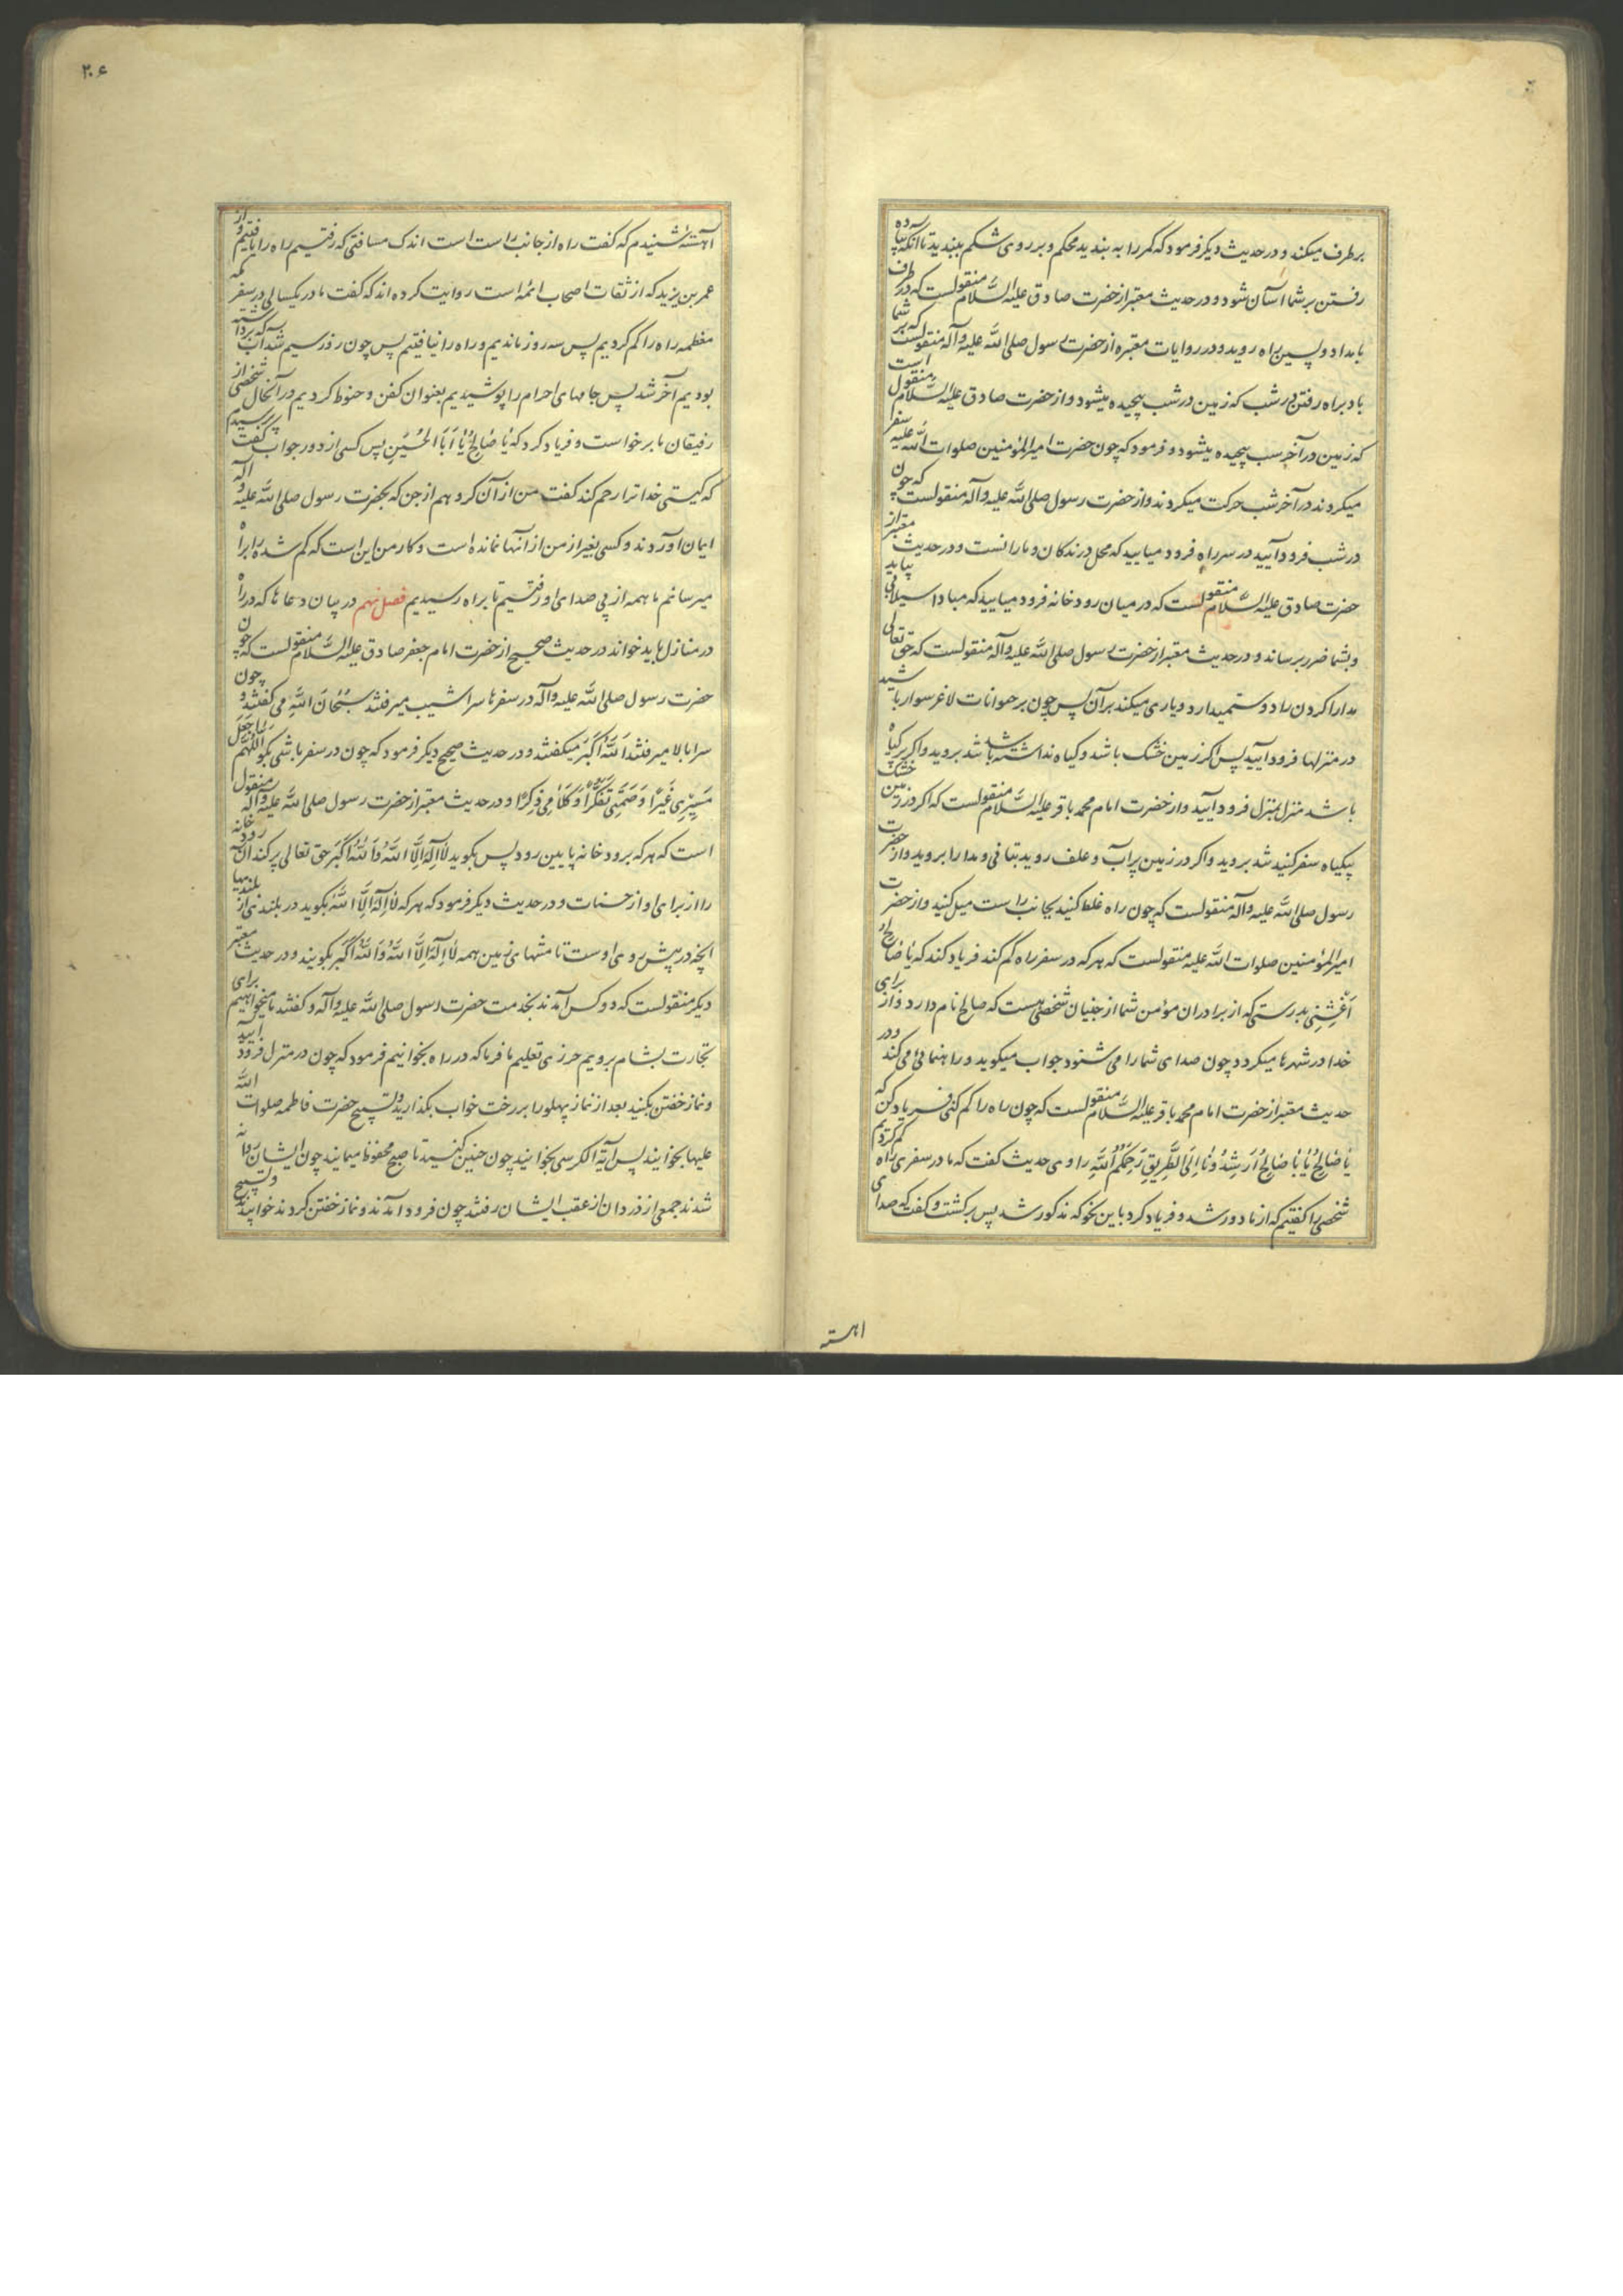 برطرف میکند و در حدیث دیکر فرمود که کمر را به بندید محکم و بر روی شکم ببندید تا آنکه پیاده
رفتن بر شما آسان شود و در حدیث معتبر از حضرت صادق علیه السّلام منقولست که در طرف
بامداد و پسین براه روید و در روایات معتبره از حضرت رسول صلی الله علیه وآله منقولست که بر شما
باد براه رفتن در شب که زمین در شب پیچیده میشود و از حضرت صادق علیه السّلام منقول است
که زمین در آخر شب پیچیده میشود و فرمود که چون حضرت امیرالمؤمنین صلوات الله علیه سفر
میکردند در آخر شب حرکت میکردند و از حضرت رسول صلی الله علیه وآله منقولست که چون
در شب فرود آیید در سر راه فرود میایید که محل درندکان و مارانست و در حدیث معتبر از
حضرت صادق علیه السّلام منقولست که در میان رودخانه فرود میایید که مبادا سیلابی بیاید
و بشما ضرر برساند و در حدیث معتبر از حضرت رسول صلی الله علیه وآله منقولست که حق تعالی
مدارا کردن را دوست میدارد و یاری میکند بر آن پس چون بر حیوانات لاغر سوار باشید
در منزلها فرود آیید پس اکر زمین خشک باشد و کیاه نداشته باشد بروید و اکر پر کیاه
باشد منزل بمنزل فرود آیید و از حضرت امام محمد باقر علیه السّلام منقولست که اکر در زمین خشک
بیکیاه سفر کنید تند بروید و اکر در زمین پر آب و علف روید بتانی و مدارا بروید و از حضرت
رسول صلی الله علیه وآله منقولست که چون راه غلط کنید بجانب راست میل کنید و از حضرت
امیرالمؤمنین صلوات الله علیه منقولست که هر که در سفر راه کم کند فریاد کند که یا صالح
اَغِثْنِی بدرستی که از برادران مؤمن شما از جنیان شخصی هست که صالح نام دارد و از برای
خدا در شهرها میکردد چون صدای شما را می شنود جواب میکوید و راهنمائی می کند و در
حدیث معتبر از حضرت امام محمد باقر علیه السّلام منقولست که چون راه را کم کنی فریاد کن که
یا صالِحُ یا بَا صالِحُ اَرْشِدُونا اِلَی الطَّرِیقِ رَحِمَکُمُ اللهُ راوی حدیث کفت که ما در سفری راه کم کردیم
شخصی را کفتیم که از ما دور شد و فریاد کرد باین نحو که مذکور شد پس برکشت و کفت که صدای
اهسته
۲۰۶
آهسته شنیدم که کفت راه از جانب راست است اندک مسافتی که رفتیم راه را یافتیم و از
عمر بن یزید که از ثقات اصحاب ائمه است روایت کرده اند که کفت ما در یکسالی در سفر مکه
معظمه راه را کم کردیم پس سه روز ماندیم و راه را نیافتیم پس چون روز سیم شد آب که برداشته
بودیم آخر شد پس جامهای احرام را پوشیدیم بعنوان کفن و حنوط کردیم در آنحال شخصی از
رفیقان ما برخواست و فریاد کرد که یا صالِحُ یا اَبَا الْحُسَیْنِ پس کسی از دور جواب کفت پرسیدیم
که کیستی خدا ترا رحم کند کفت من از آن کروهم از جن که بحضرت رسول صلی الله علیه وآله
ایمان آوردند و کسی بغیر از من از آنها نمانده است و کار من این است که کم شده را براه
میرسانم ما همه از پی صدای او رفتیم تا براه رسیدیم فصل نهم در بیان دعاها که در راه
در منازل باید خواند در حدیث صحیح از حضرت امام جعفر صادق علیه السّلام منقولست که چون
حضرت رسول صلی الله علیه وآله در سفرها سراشیب میرفتند سُبْحانَ اللهِ می کفتند و چون
سرابالا میرفتند اَللهُ اَکْبَرُ میکفتند و در حدیث صحیح دیکر فرمود که چون در سفر باشی بکو اَللّهُمَّ اجْعَلْ
مَسِیرِی عَبَراً وَ صَمْتِی تَفَکُّراً وَ کَلامِی ذِکْراً و در حدیث معتبر از حضرت رسول صلی الله علیه وآله منقول
است که هر که برودخانه پایین رود پس بکوید لا اِلهَ اِلَّا اللهُ وَ اللهُ اَکْبَرُ حق تعالی پر کند آن رودخانه
را از برای او از حسنات و در حدیث دیکر فرمود که هر که لا اِلهَ اِلَّا اللهُ بکوید در بلندئی از بلندیها
آنچه در پیش روی اوست تا منتهای زمین همه لا اِلهَ اِلَّا اللهُ وَ اللهُ اَکْبَرُ بکویند و در حدیث معتبر
دیکر منقولست که دو کس آمدند بخدمت حضرت رسول صلی الله علیه وآله و کفتند ما میخواهیم برای
تجارت بشام برویم حرزی تعلیم ما فرما که در راه بخوانیم فرمود که چون در منزل فرود آیید
و نماز خفتن بکنید بعد از نماز پهلو را بر رخت خواب بکذارید و تسبیح حضرت فاطمه صلوات الله
علیها بخوانید پس آیة الکرسی بخوانید چون چنین کنید تا صبح محفوظ میمانید چون ایشان روانه
شدند جمعی از دزدان از عقب ایشان رفتند چون فرود آمدند و نماز خفتن کردند خوابیدند و تسبیح